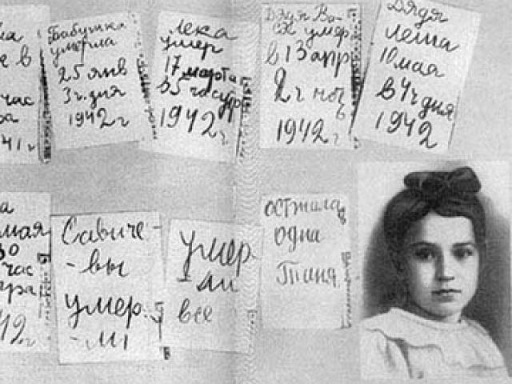 е в
час
41 г
Бабушка
умерла
25 янв
3 ч. дня
1942 г
Лека
умер
17 марта
в 5 час утр
1942 г
Дядя Ва-
ся умер
в 13 апр
2 ч ноч
1942 г
Дядя
Леша
10 мая
в 4 ч дня
1942
а
мая
30
час
ера
42 г
Савиче-
-вы
умер.
-ли
умер
-ли
все
осталась
одна
Таня.